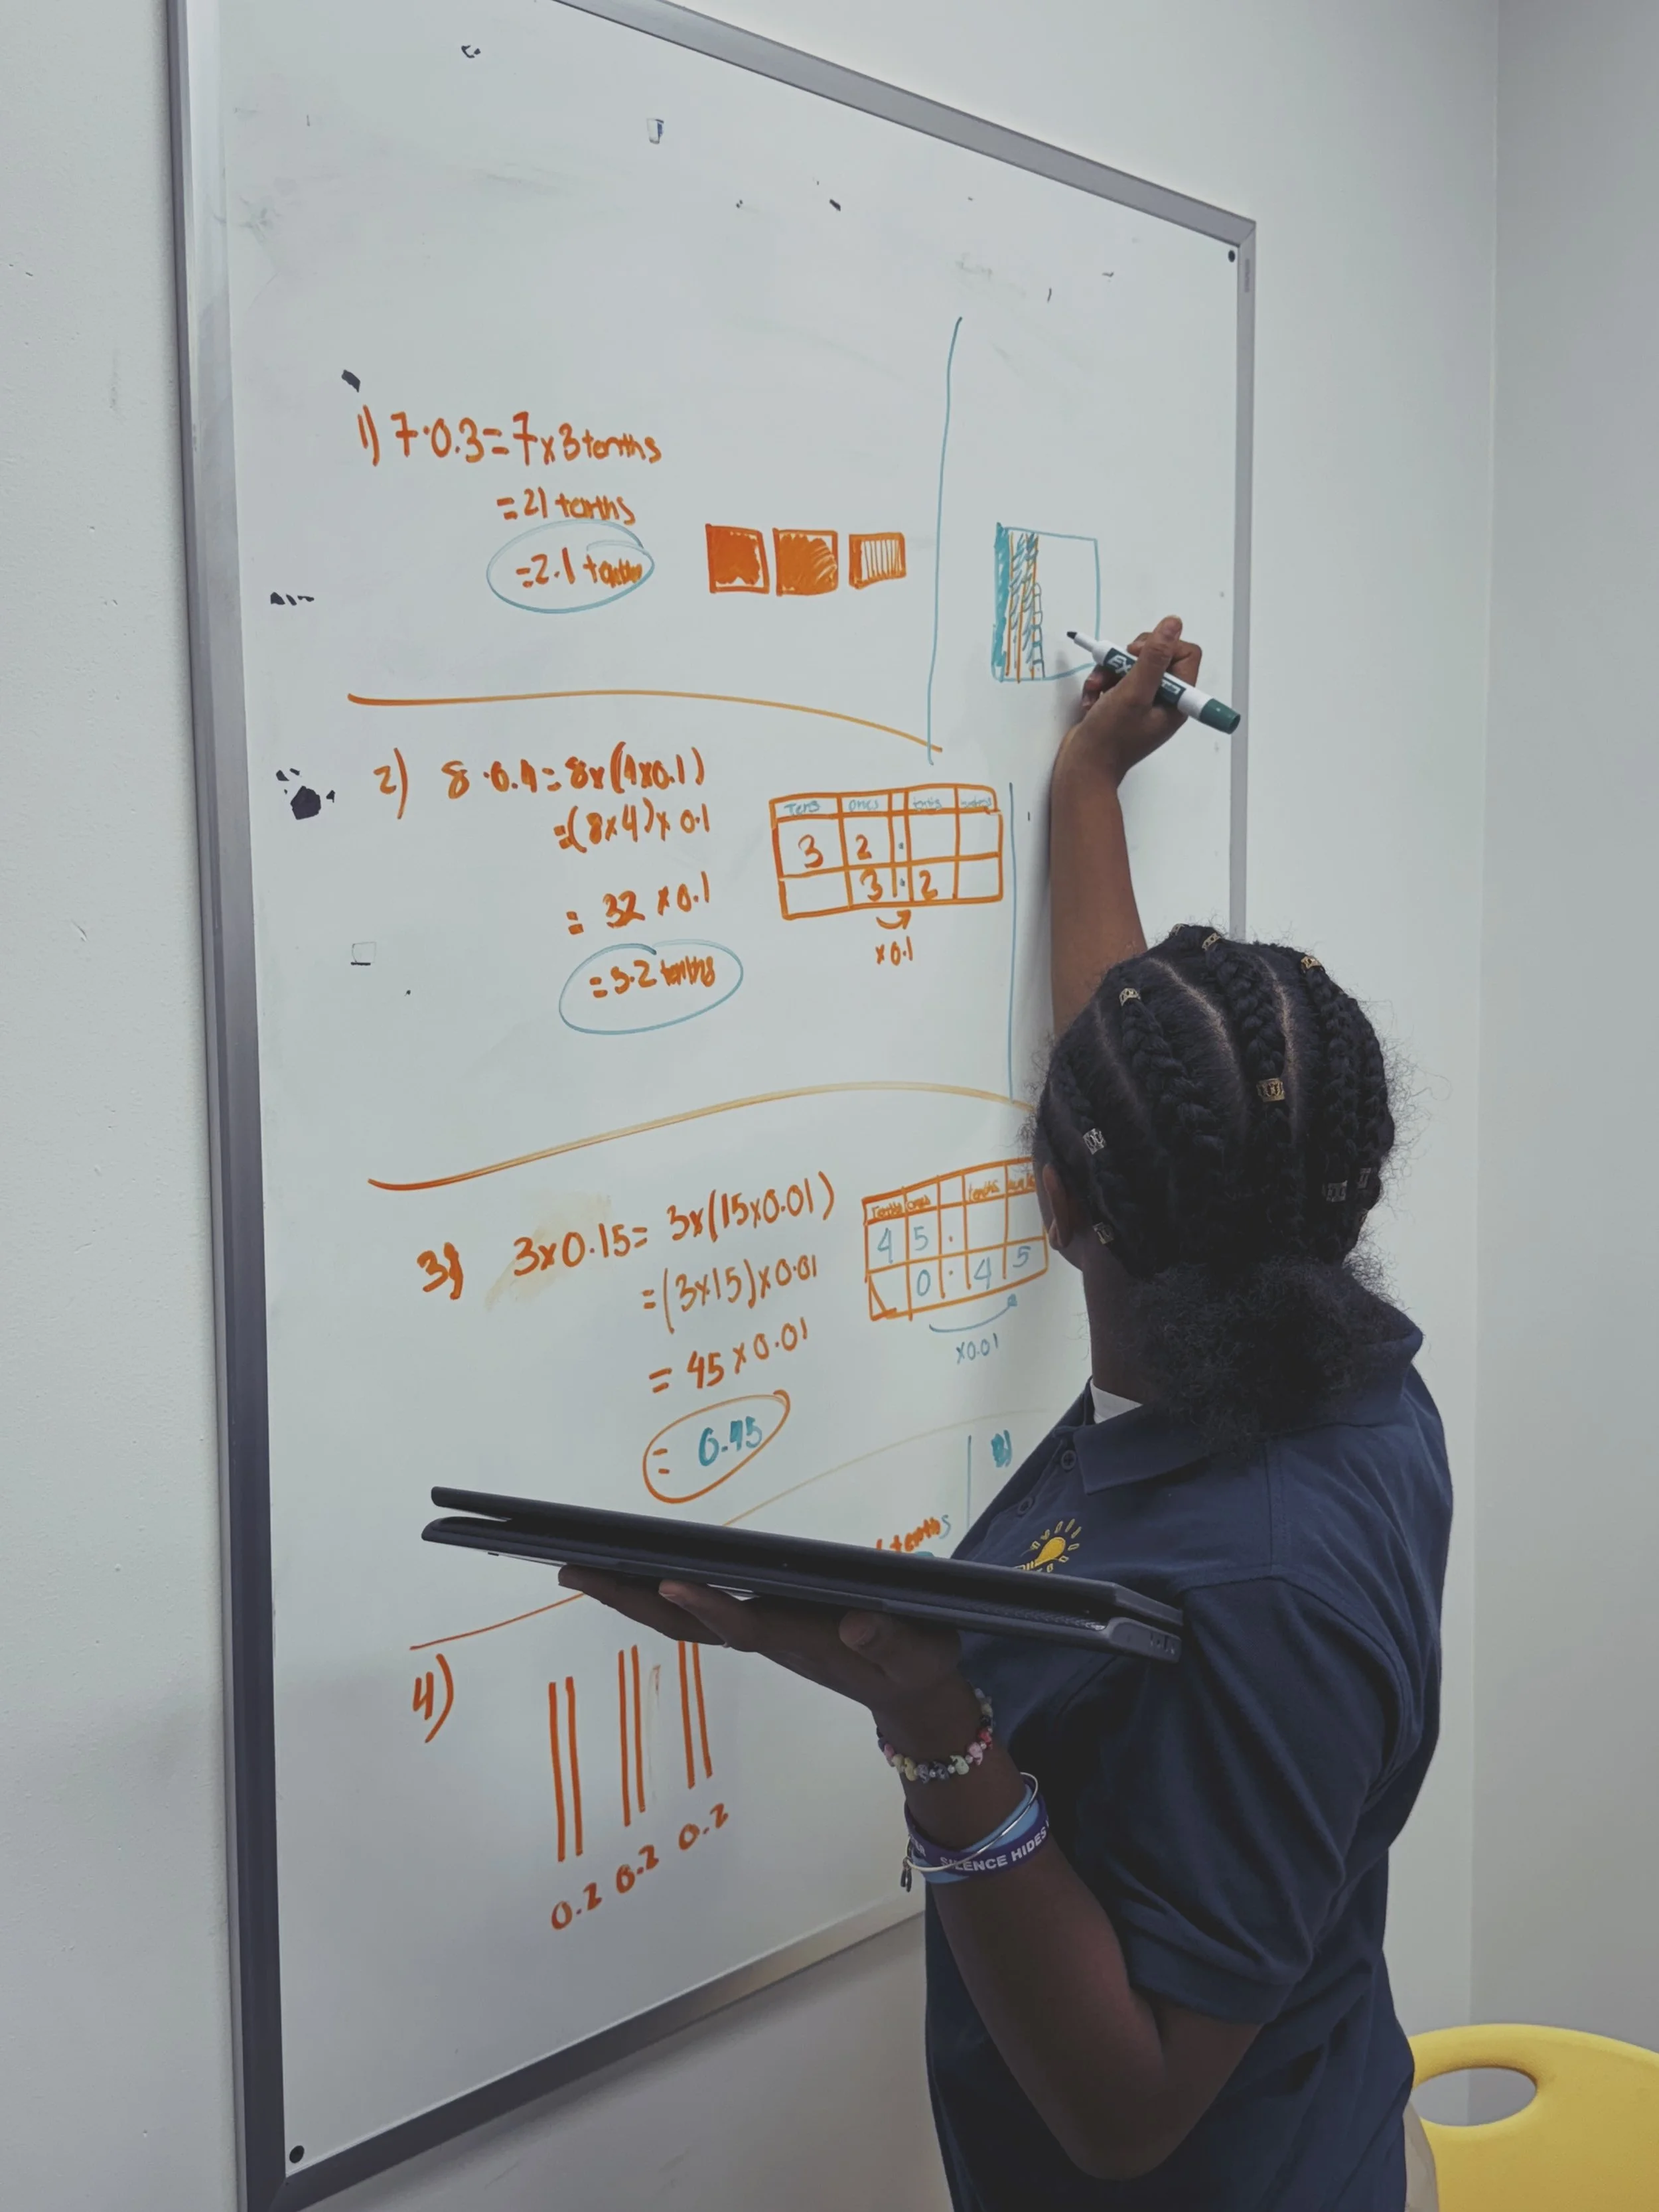 1) 7·0.3=7x3tenths
=21 tenths
=2.1
2) 8·0.4=8x(4x0.1)
=(8x4)x0.1
= 32 x0.1
=3.2 tenths
Tens ones tenths
3 2 .
3 . 2
x0.1
3) 3x0.15= 3x(15x0.01)
=(3x15)x0.01
= 45x0.01
= 0.45
ones tenths
4 5 .
0 . 4 5
x0.01
tenths
4)
0.2 0.2 0.2
EX
SILENCE HIDES